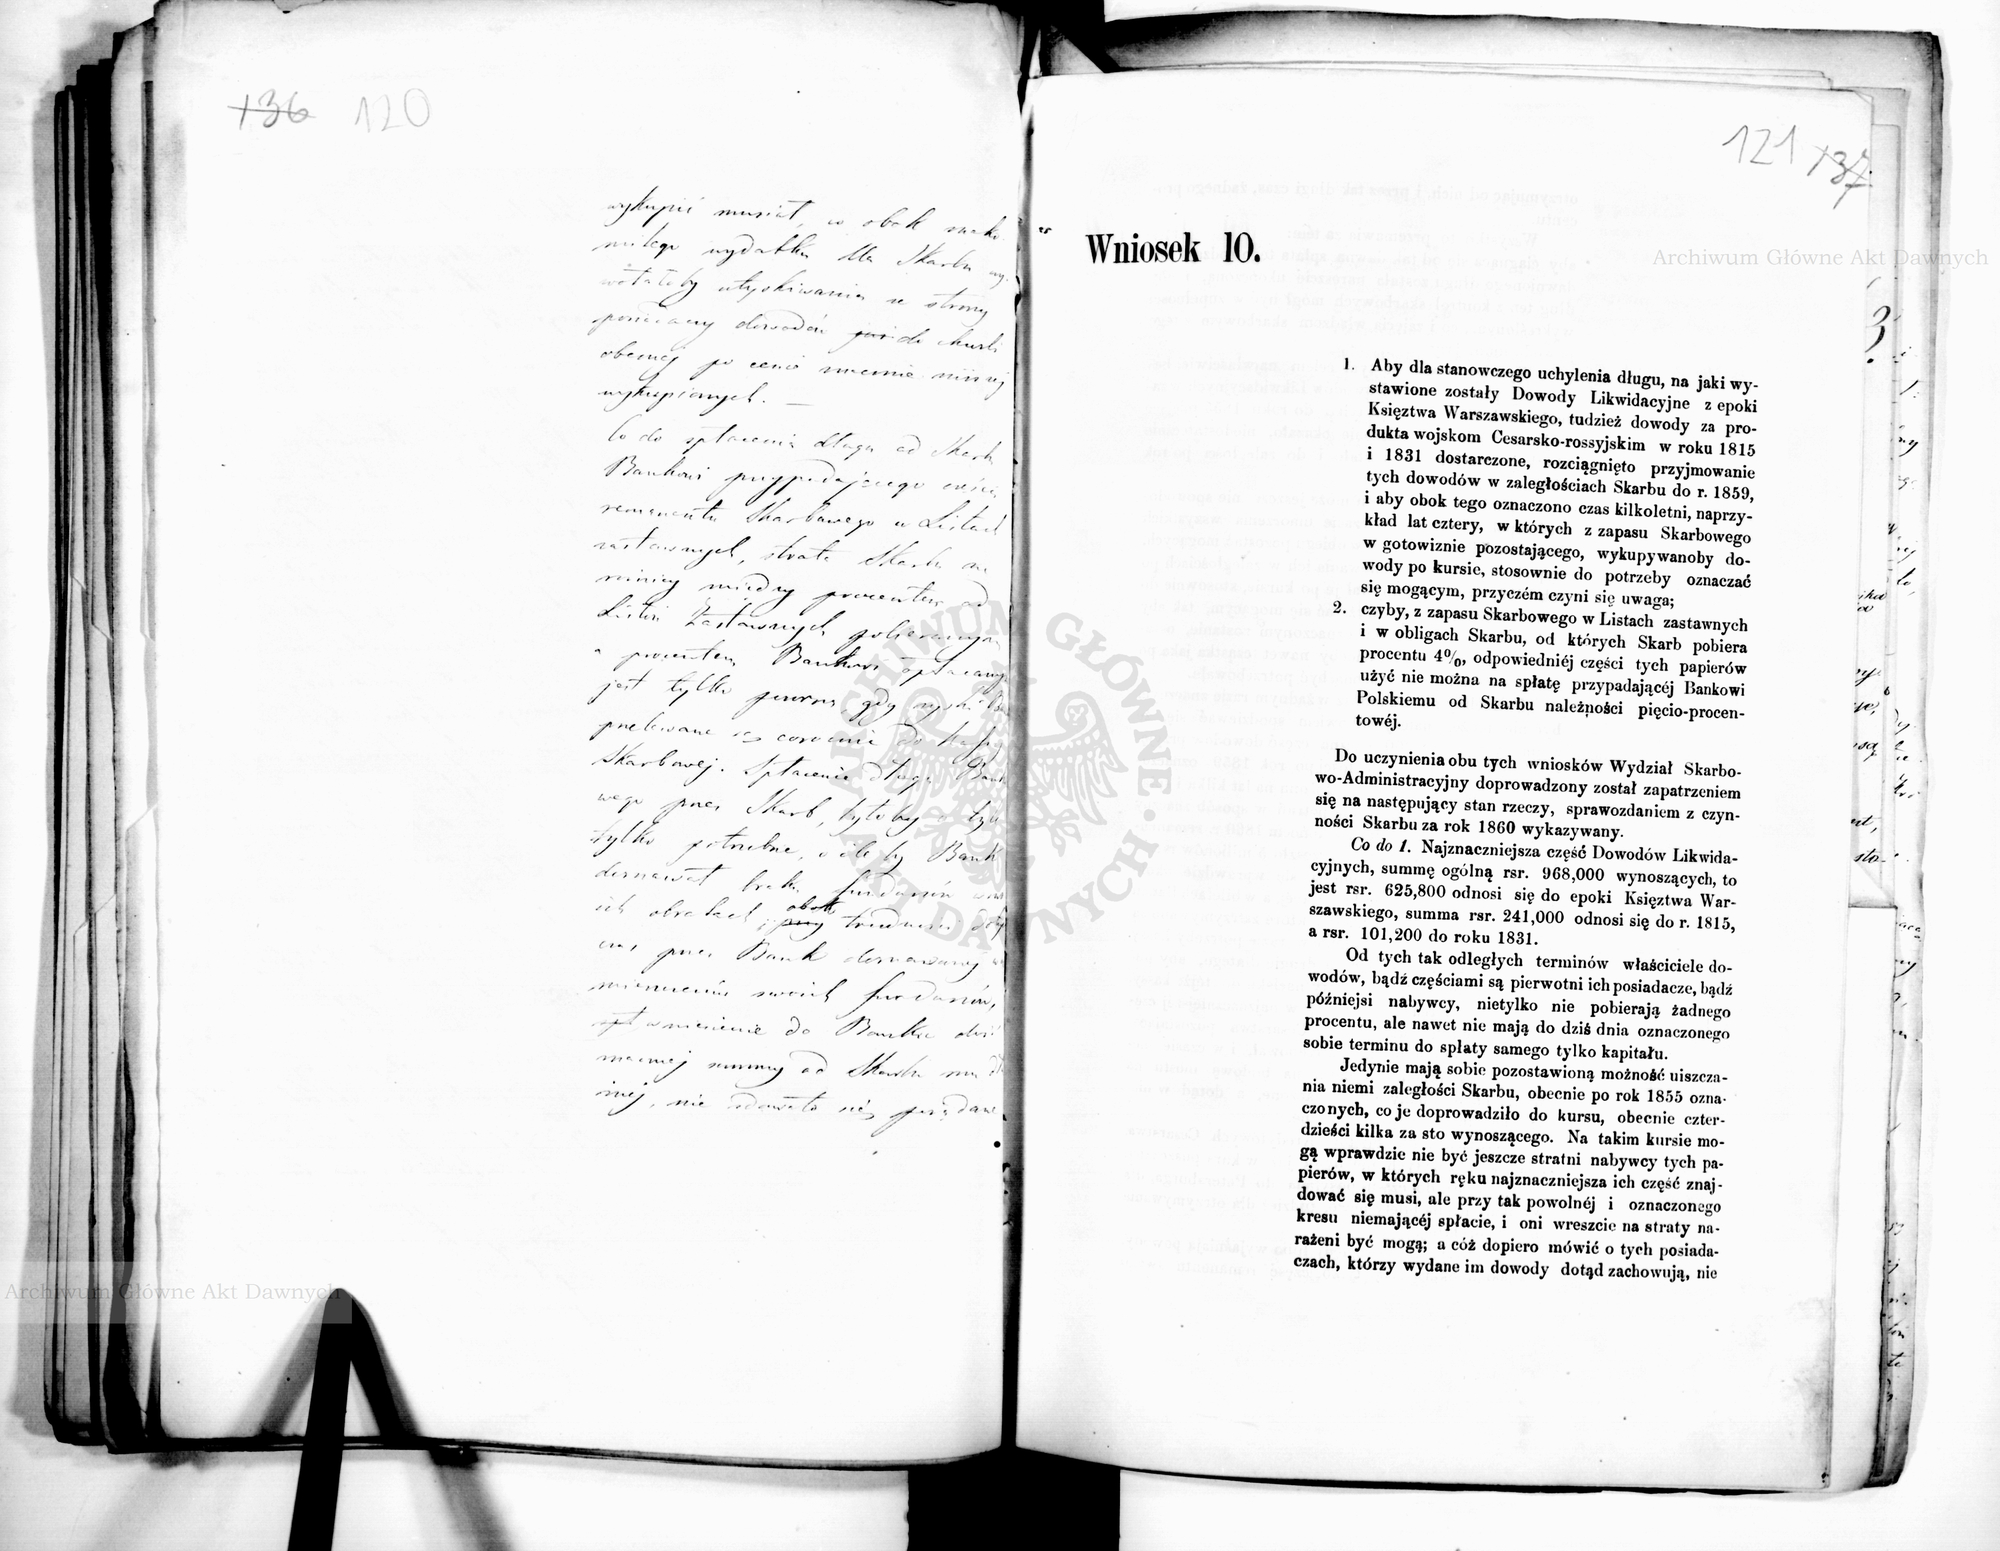 136 120
wykupić musiał, co obok znako-
mitego wydatku dla Skarbu wy-
wołałoby utyskiwania ze strony
posiadaczy dowodów już do chwili
obecnej po cenie znacznie niższej
wykupionych. —
Co do spłacenia długu od Skarbu
Bankowi przypadającego częścią
remanentu Skarbowego w Listach
zastawnych, strata Skarbu na
różnicy między procentem od
Listów Zastawnych pobieranym
a procentem Bankowi opłacanym
jest tylko pozorną, gdy zyski Ban
przelewane są corocznie do Kassy
Skarbowej. Spłacenie długu Banko
wego przez Skarb, byłoby o tyle
tylko potrzebne, o ile by Bank
doznawał braku funduszów w
ich obrotach; przy obok trudności
czas przez Bank doznawanej w
umieszczeniu swoich funduszów,
wniesienie do Banku dość
znacznej summy od Skarbu
nie zdawało się pożądane
121 137
Wniosek 10.
Archiwum Główne Akt Dawnych
1. Aby dla stanowczego uchylenia długu, na jaki wy-
stawione zostały Dowody Likwidacyjne z epoki
Księztwa Warszawskiego, tudzież dowody za pro-
dukta wojskom Cesarsko-rossyjskim w roku 1815
i 1831 dostarczone, rozciągnięto przyjmowanie
tych dowodów w zaległościach Skarbu do r. 1859,
i aby obok tego oznaczono czas kilkoletni, naprzy-
kład lat cztery, w których z zapasu Skarbowego
w gotowiznie pozostającego, wykupywanoby do-
wody po kursie, stosownie do potrzeby oznaczać
się mogącym, przyczém czyni się uwaga;
2. czyby, z zapasu Skarbowego w Listach zastawnych
i w obligach Skarbu, od których Skarb pobiera
procentu 4%, odpowiedniéj części tych papierów
użyć nie można na spłatę przypadającéj Bankowi
Polskiemu od Skarbu należności pięcio-procen-
towéj.
Do uczynienia obu tych wniosków Wydział Skarbo-
wo-Administracyjny doprowadzony został zapatrzeniem
się na następujący stan rzeczy, sprawozdaniem z czyn-
ności Skarbu za rok 1860 wykazywany.
Co do 1. Najznaczniejsza część Dowodów Likwida-
cyjnych, summę ogólną rsr. 968,000 wynoszących, to
jest rsr. 625,800 odnosi się do epoki Księztwa War-
szawskiego, summa rsr. 241,000 odnosi się do r. 1815,
a rsr. 101,200 do roku 1831.
Od tych tak odległych terminów właściciele do-
wodów, bądź częściami są pierwotni ich posiadacze, bądź
późniejsi nabywcy, nietylko nie pobierają żadnego
procentu, ale nawet nie mają do dziś dnia oznaczonego
sobie terminu do spłaty samego tylko kapitału.
Jedynie mają sobie pozostawioną możność uiszcza-
nia niemi zaległości Skarbu, obecnie po rok 1855 ozna-
czonych, co je doprowadziło do kursu, obecnie czter-
dzieści kilka za sto wynoszącego. Na takim kursie mo-
gą wprawdzie nie być jeszcze stratni nabywcy tych pa-
pierów, w których ręku najznaczniejsza ich część znaj-
dować się musi, ale przy tak powolnéj i oznaczonego
kresu niemającéj spłacie, i oni wreszcie na straty na-
rażeni być mogą; a cóż dopiero mówić o tych posiada-
czach, którzy wydane im dowody dotąd zachowują, nie
ARCHIWUM GŁÓWNE AKT DAWNYCH
Archiwum Główne Akt Dawnych